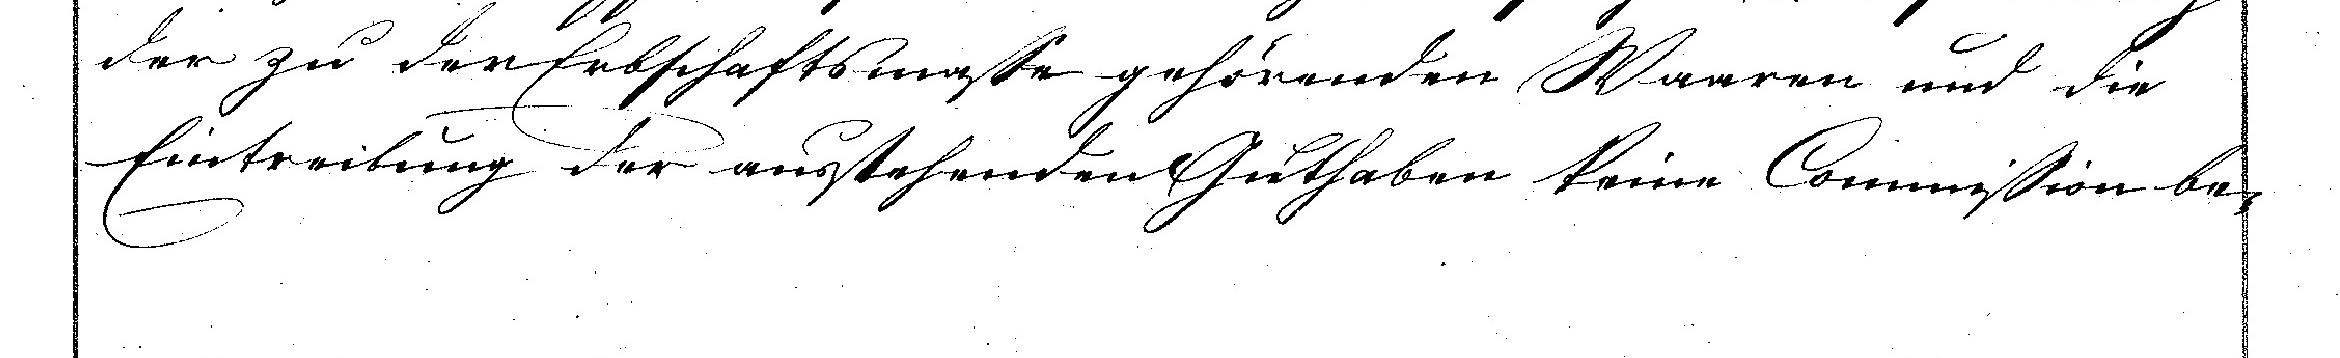 der zu der Erbschaftsmasse gehörenden Waaren und die
Eintreibung der ausstehenden Guthaben keine Commission be-